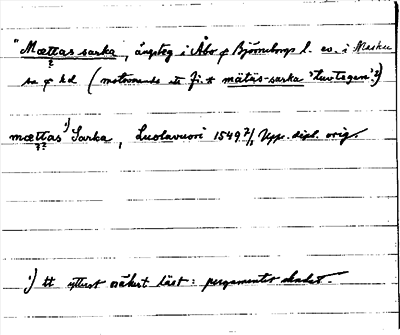 "Mættas sarka", ångsteg i Åbo o Björneborgs l. ev. i Masku
sn o hd ( motsvarande ett fi. * mätäs-sarka 'Tuvtegen'?)
mættas ¹) Sarka, Luolavuori 1549 7/1 Upps. dipl. orig.
¹) tt ytterst osäkert läst: pergamentet skadat.